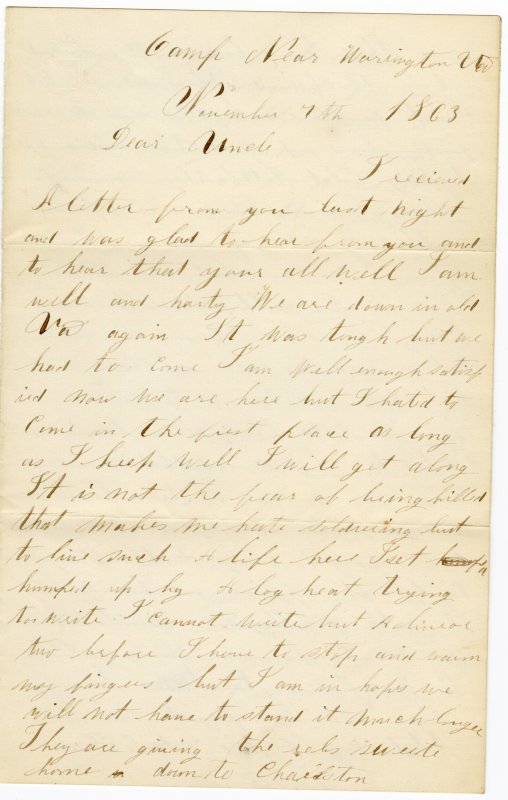 Camp Near Warington Va
November 7th 1863
Dear Uncle
I recieved
A letter from you last night
and was glad to hear from you and
to hear that your all well I am
well and harty We are down in old
Va again It was tough but we
had to come I am well enough satisf
ied now we are here but I hated to
Come in the first place as long
as I keep well I will get along
It is not the fear of being killed
that makes me hate soldiering but
to live such A life here I set
humped up by A log heat trying
to write I cannot write but A line or
two before I have to stop and warm
my fingers but I am in hopes we
will not have to stand it much longer
They are giving the rebs sweete
home down to Charlston